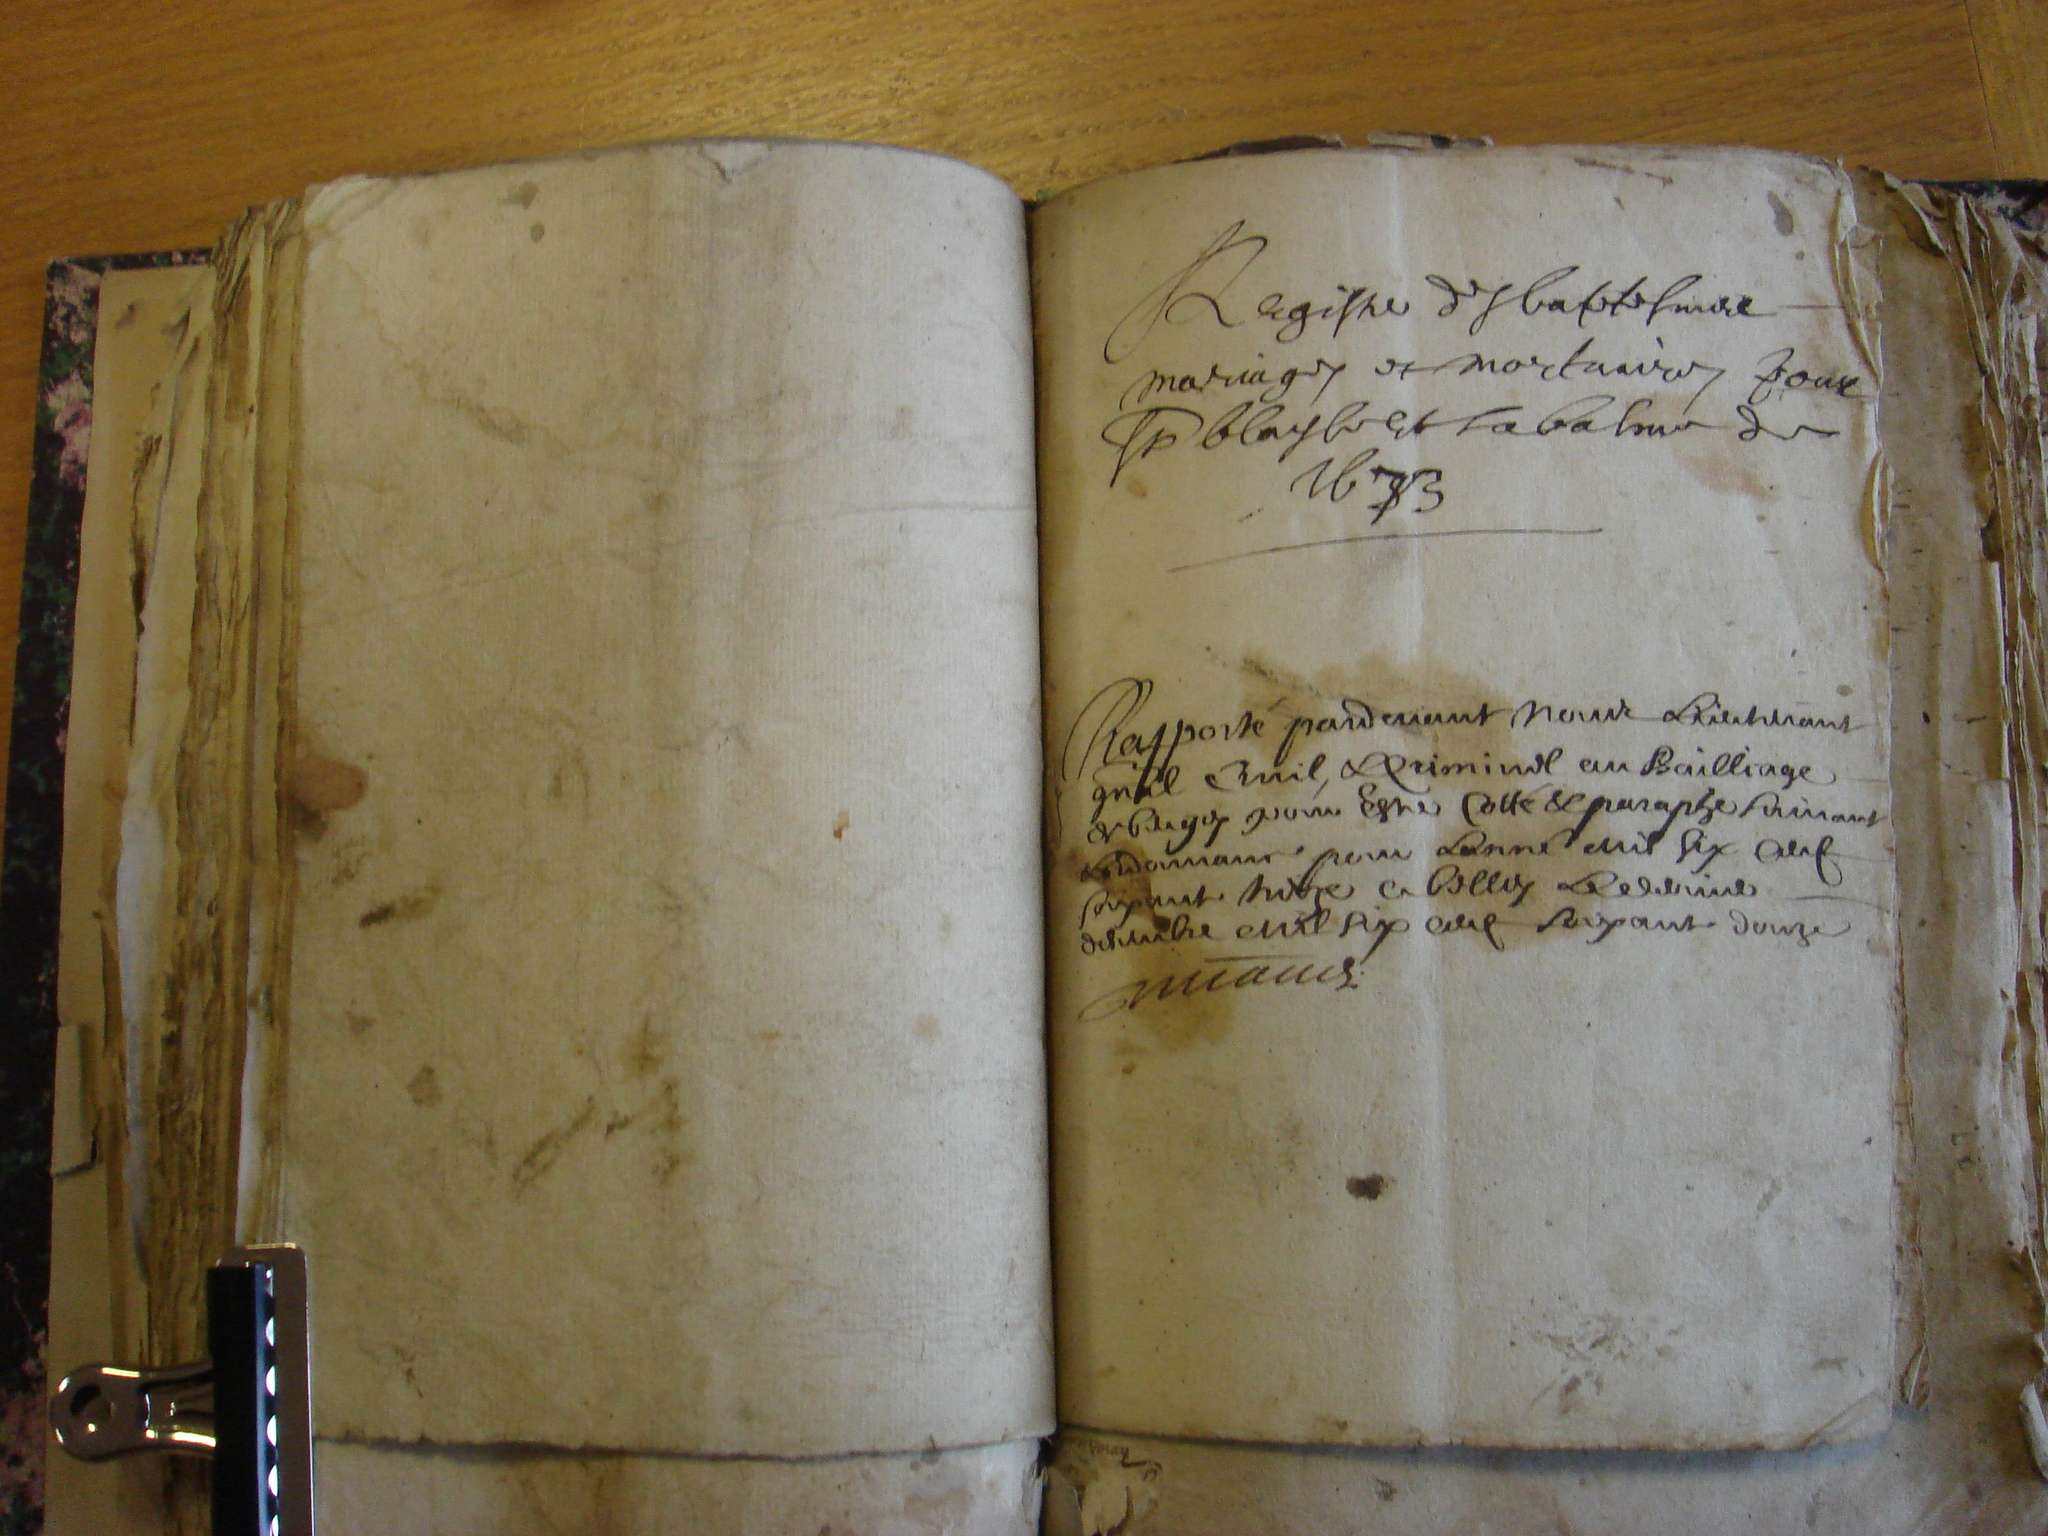 Registre des baptesmere
mariages et mortuaires pour
St blayse et la balme de
1673
Rapporté pardevant nous Lieutenant
gnâl civil, & Criminel au Bailliage
de bugey pour Estre Cotté & paraphe suivant
Lordonnance pour Lanné mil six cent
soixante treize a belley Le
décembre mil six cent soixante douze